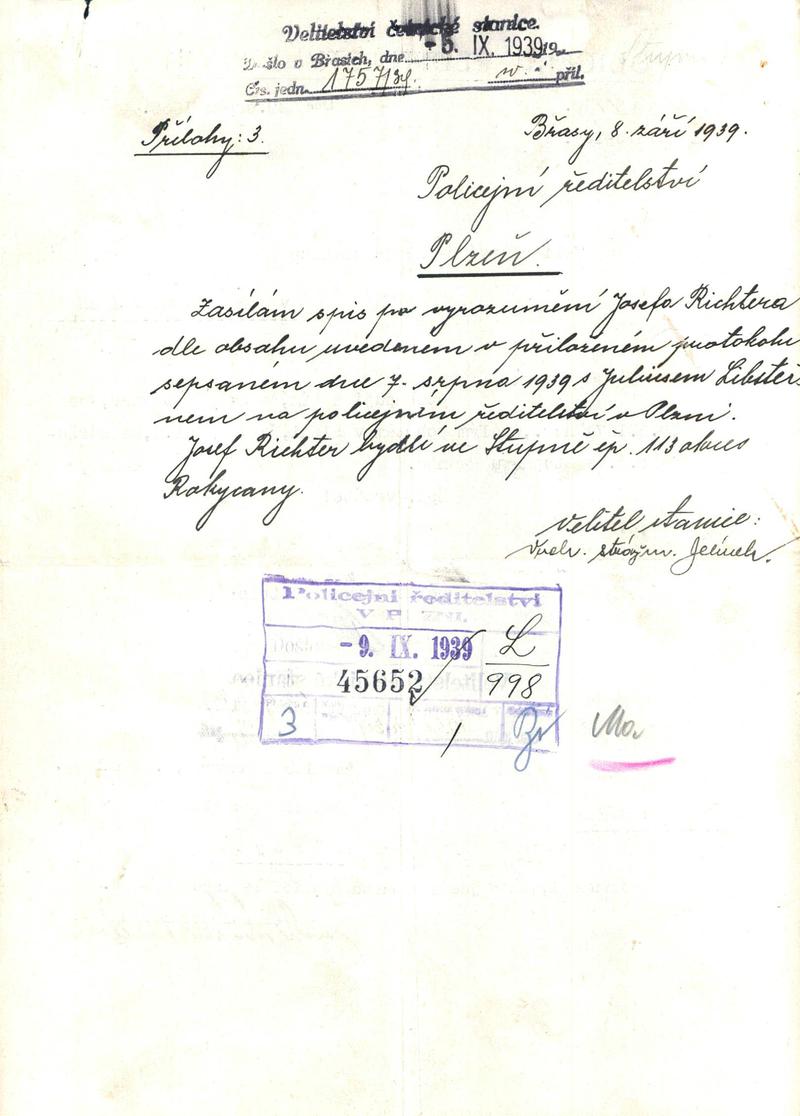 Velitelství četnické stanice.
Došlo v Břasích, dne - 5. IX. 1939 19
Čís. jedn. 1757/39. příl.
Přílohy: 3.
Břasy, 8. září 1939.
Policejní ředitelství
Plzeň.
Zasílám spis po vyrozumění Josefa Richtera
dle obsahu uvedeném v přiloženém protokolu
sepsaném dne 7. srpna 1939 s Juliusem Libštei-
nem na policejním ředitelství v Plzni.
Josef Richter bydlí ve Stupně čp. 113 okres
Rokycany.
Velitel stanice:
vrch. strážm. Jelínek.
Policejní ředitelství
V PLZNI.
- 9. IX. 1939
L
45652
998
3
Ma.